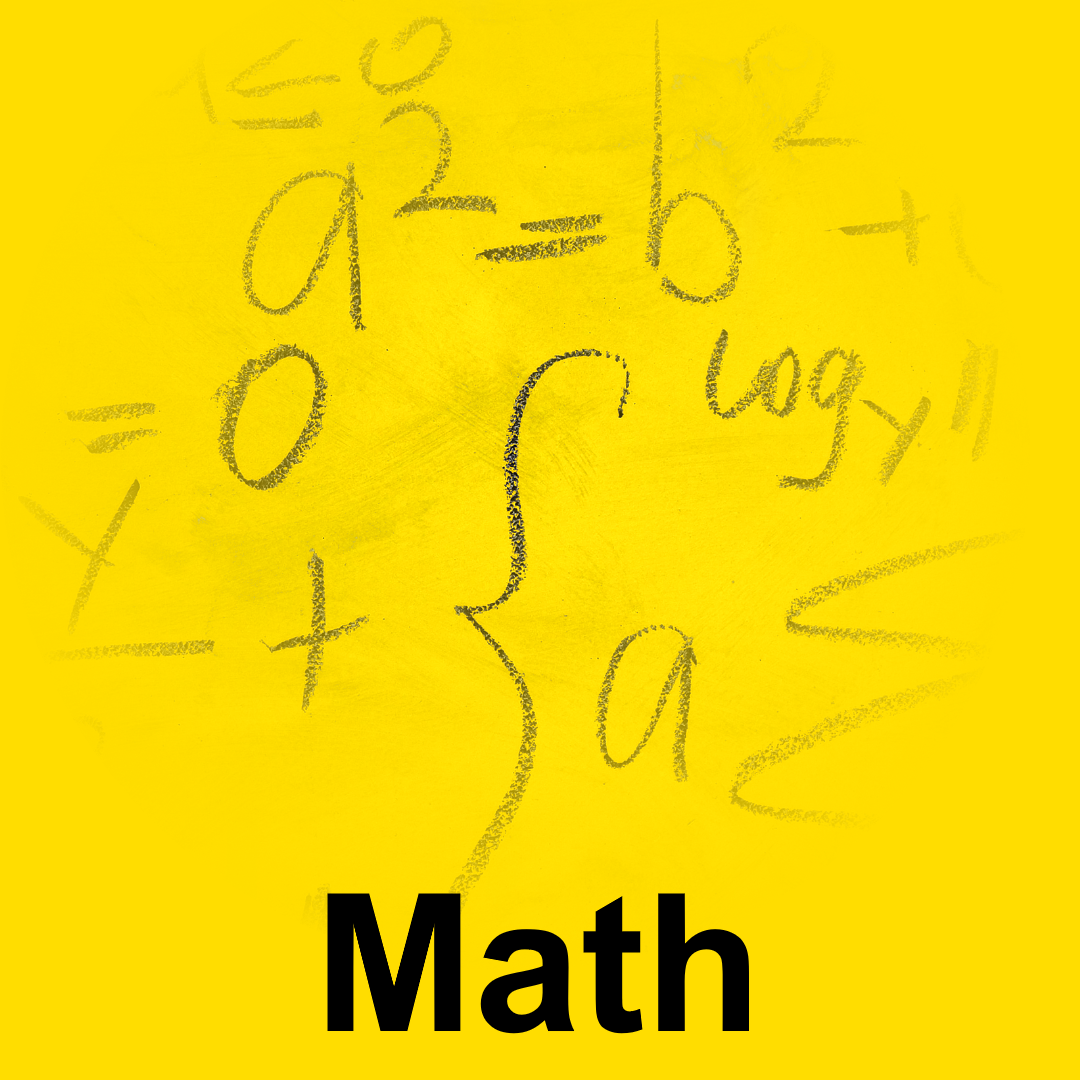 ≤ 0
a² = b² +
= 0
log y
y
— +
{ a
<
<
Math